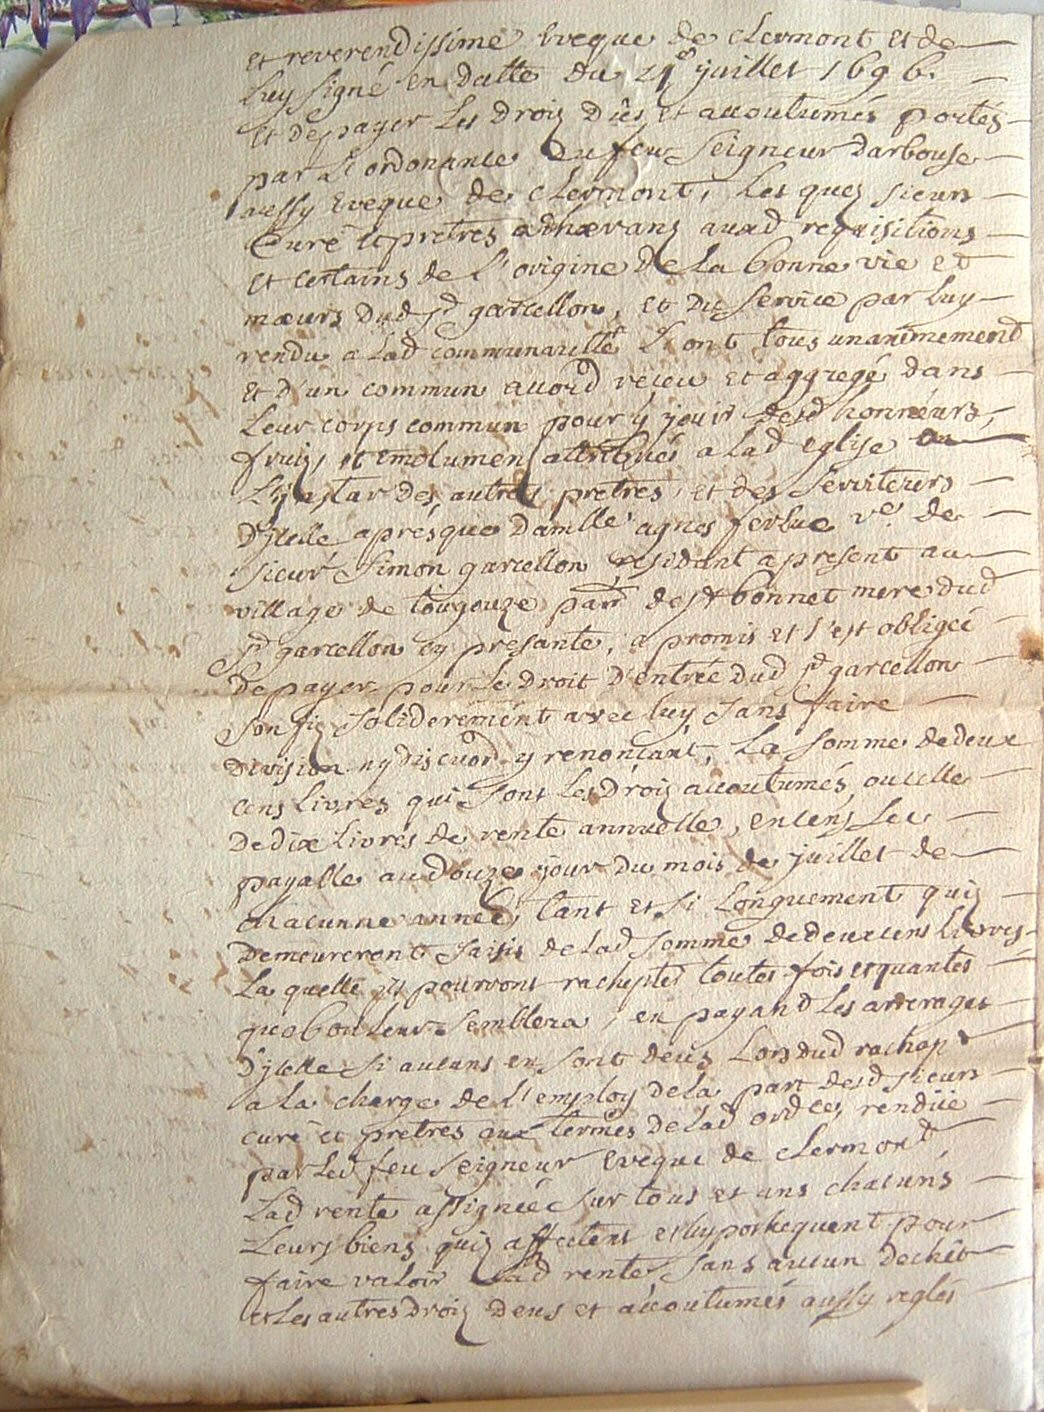 et reverendissime Eveque de clermont et de
luy signé en datte du 21e juillet 1696.
et de payer les droiz dûes et accoutumés portés
par l'ordonance du feu seigneur darbouse
aussy Eveque de clermont, les quez sieurs
Curé et pretres adhærans auxd requisitions
et certains de l'origine de la bonne vie et
mœurs dud sr garcellon, et du service par luy
rendu a lad communauité l'ont tous unanimement
et d'un commun accord receu et aggregé dans
leur corps commun pour y jouir desd honneurs,
fruiz, et emolumens attribués a lad eglise
l'instar des autres pretres, et des serviteurs
d'ycelle apres que damlle agnes ferluc ve de
sieur Simon garcellon residant a present au
village de tougouze parr de st bonnet mere dud
sr garcellon cy presante, a promis et s'est obligée
de payer pour le droit d'entrée dud sr garcellon
son fiz soliderement avec luy sans faire
division ny discuon y renonçant, la somme de deux
cens livres qui sont les droiz accoutumés, ou celle
de dix livres de rente annuelle, en cens sec
payalle au douze jour du mois de juillet de
chacunne année, tant et si longuement quiz
demeureront saisis de lad somme de deux cens livres
la quelle ils pourront rachepter toutes fois et quantes
que bon leur semblera, en payand les arrerages
d'ycelle si aucuns en sont deus lors dud rachapt
a la charge de l'employ de la part desd sieurs
curé et pretres aux termes de lad ordce rendüe
par led feu seigneur Eveque de clermont,
lad rente assignée sur tous et uns chacuns
leurs biens quiz affectent et hypothequent pour
faire valoir lad rente sans aucun dechêt
et les autres droiz deus et accoutumés aussy reglés